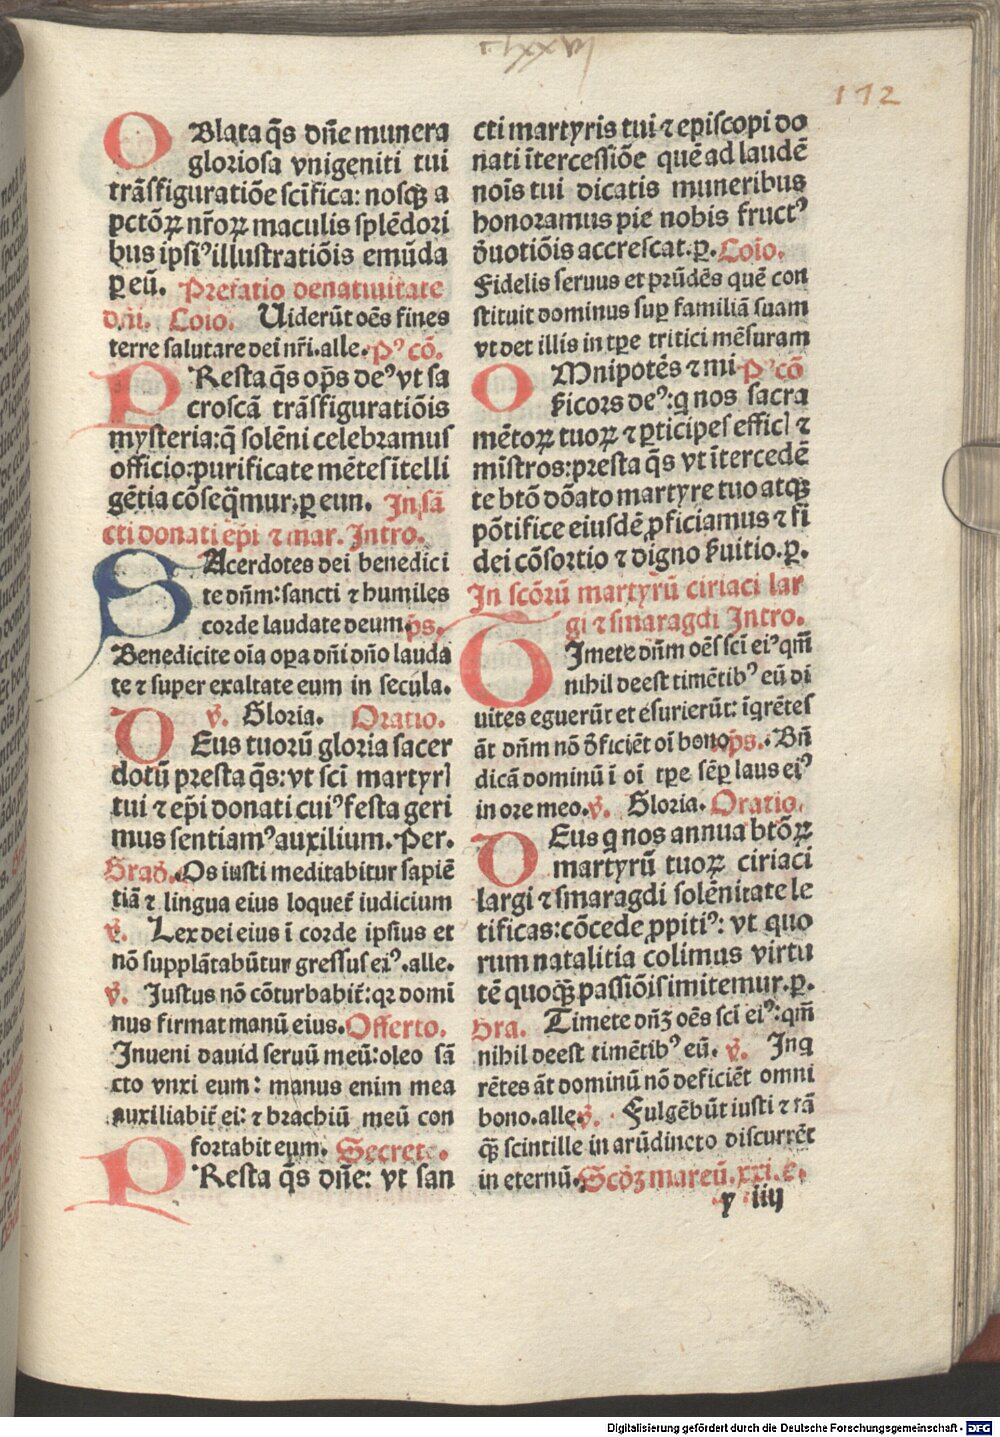 clxxvj
172
OBlata q̄s dn̄e munera
gloriosa vnigeniti tui
trāsfiguratiōe scīfica: nosqꝫ a
pctōꝝ nr̄oꝝ maculis splēdori
bus ipsiꝰ illustratiōis emūda
ꝑ eū. Prefatio de natiuitate
dn̄i. Coīo. Uiderūt oēs fines
terre salutare dei nr̄i. alle. Pꝰ cō.
PResta q̄s op̄s deꝰ vt sa
croscā trāsfiguratiōis
mysteria: q̄ solēni celebramus
officio: purificate mētes ītelli
gētia cōseq̄mur. ꝑ eun. In sā
cti donati ep̄i ⁊ mar. Intro.
SAcerdotes dei benedici
te dn̄m: sancti ⁊ humiles
corde laudate deum. p̄s.
Benedicite oīa oꝑa dn̄i dn̄o lauda
te ⁊ super exaltate eum in secula.
v̄. Gloria. Oratio.
DEus tuorū gloria sacer
dotū presta q̄s: vt scī martyrꝭ
tui ⁊ ep̄i donati cuiꝰ festa geri
mus sentiamꝰ auxilium. Per.
Grad̄. Os iusti meditabitur sapiē
tiā ⁊ lingua eius loquet̄ iudicium
v̄. Lex dei eius ī corde ipsius et
nō supplātabūtur gressus eiꝰ. alle.
v̄. Iustus nō cōturbabit̄: qꝛ domi
nus firmat manū eius. Offerto.
Inueni dauid seruū meū: oleo sā
cto vnxi eum: manus enim mea
auxiliabit̄ ei: ⁊ brachiū meū con
fortabit eum. Secret.
PResta q̄s dn̄e: vt san
cti martyris tui ⁊ episcopi do
nati ītercessiōe quē ad laudē
noīs tui dicatis muneribus
honoramus pie nobis fructꝰ
d̄uotiōis accrescat. ꝑ. Coīo.
Fidelis seruus et prūdēs quē con
stituit dominus suꝑ familiā suam
vt det illis in tꝑe tritici mēsuram
OMnipotēs ⁊ mi Pꝰ cō
ẜicors deꝰ: q nos sacra
mētoꝝ tuoꝝ ⁊ ꝑticipes efficꝭ ⁊
mīstros: presta q̄s vt ītercedē
te btō dōato martyre tuo atqꝫ
pōtifice eiusdē ꝓficiamus ⁊ fi
dei cōsortio ⁊ digno ẜuitio. ꝑ.
In scōrū martyrū ciriaci lar
gi ⁊ smaragdi Intro.
TImete dn̄m oēs scī eiꝰ qm̄
nihil deest timētibꝰ eū di
uites eguerūt et esurierūt: īqrētes
āt dn̄m nō d̄ficiēt oī bono p̄s. Bn̄
dicā dominū ī oī tꝑe sēꝑ laus eiꝰ
in ore meo. v̄. Gloria. Oratio.
DEus q nos annua btōꝝ
martyrū tuoꝝ ciriaci
largi ⁊ smaragdi solēnitate le
tificas: cōcede ꝓpitiꝰ: vt quo
rum natalitia colimus virtu
tē quoqꝫ passiōis imitemur. ꝑ.
Gra. Timete dn̄ꝫ oēs scī eiꝰ: qm̄
nihil deest timētibꝰ eū. v̄. Inq
rētes āt dominū nō deficiēt omni
bono. alle. v̄. Fulgēbūt iusti ⁊ tā
qꝫ scintille in arūdineto discurrēt
in eternū. Scd̄ꝫ mareū. xxi. e.
y iiij
Digitalisierung gefördert durch die Deutsche Forschungsgemeinschaft - DFG